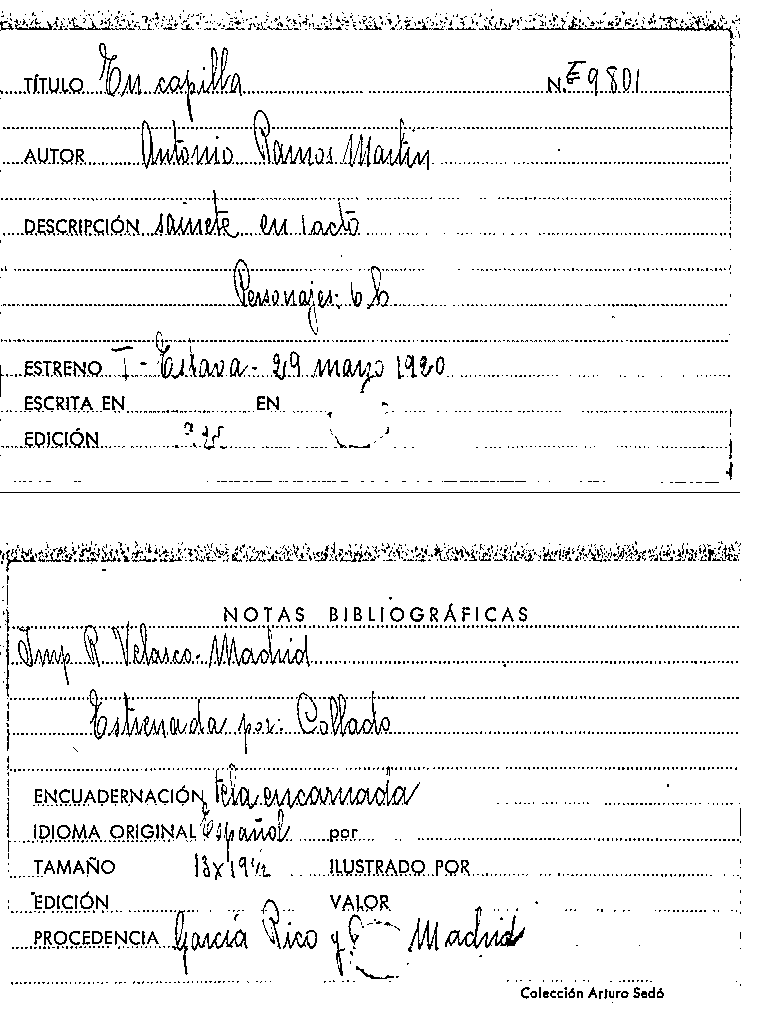 TÍTULO En capilla N. E 9801
AUTOR Antonio Ramos Martín
DESCRIPCIÓN sainete en 1 acto
Personajes: 6 h
ESTRENO T- Eslava - 29 marzo 1920
ESCRITA EN EN
EDICIÓN
NOTAS BIBLIOGRÁFICAS
Imp R. Velasco - Madrid
Estrenada por: Collado
ENCUADERNACIÓN tela encarnada
IDIOMA ORIGINAL Español por
TAMAÑO 13x19½ ILUSTRADO POR
EDICIÓN VALOR
PROCEDENCIA García Rico y Cª Madrid
Colección Arturo Sedó